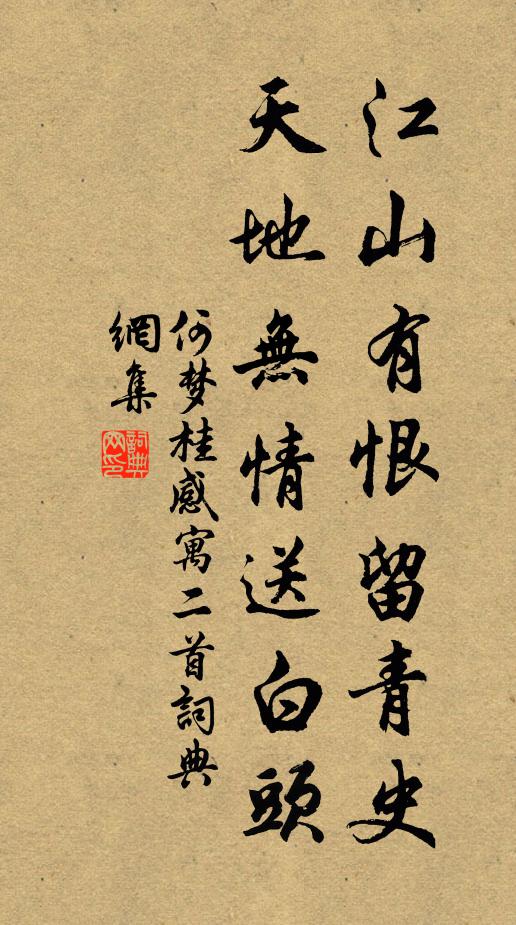 江山有恨留青史
天地無情送白頭
何梦桂感寓二首詞典
網集
詞典網印